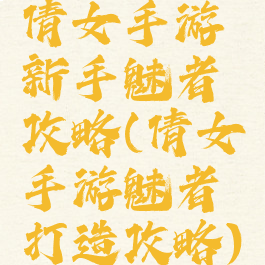 倩女手游
新手魅者
攻略(倩女
手游魅者
打造攻略)